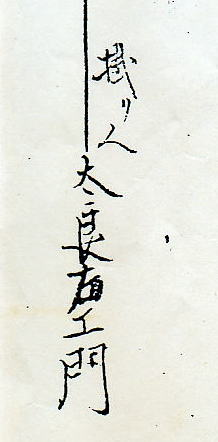 掛り人
太良右エ門